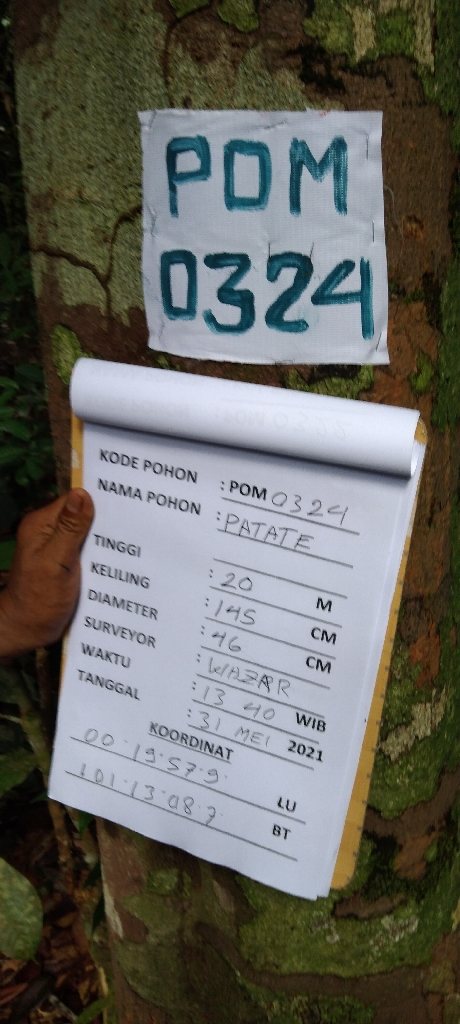 POM
0324
KODE POHON : POM 0324
NAMA POHON : PATATE
TINGGI : 20 M
KELILING : 145 CM
DIAMETER : 46 CM
SURVEYOR : WAZAR
WAKTU : 13 40 WIB
TANGGAL : 31 MEI 2021
KOORDINAT
00.19.57.9. LU
101.13.08.7 BT